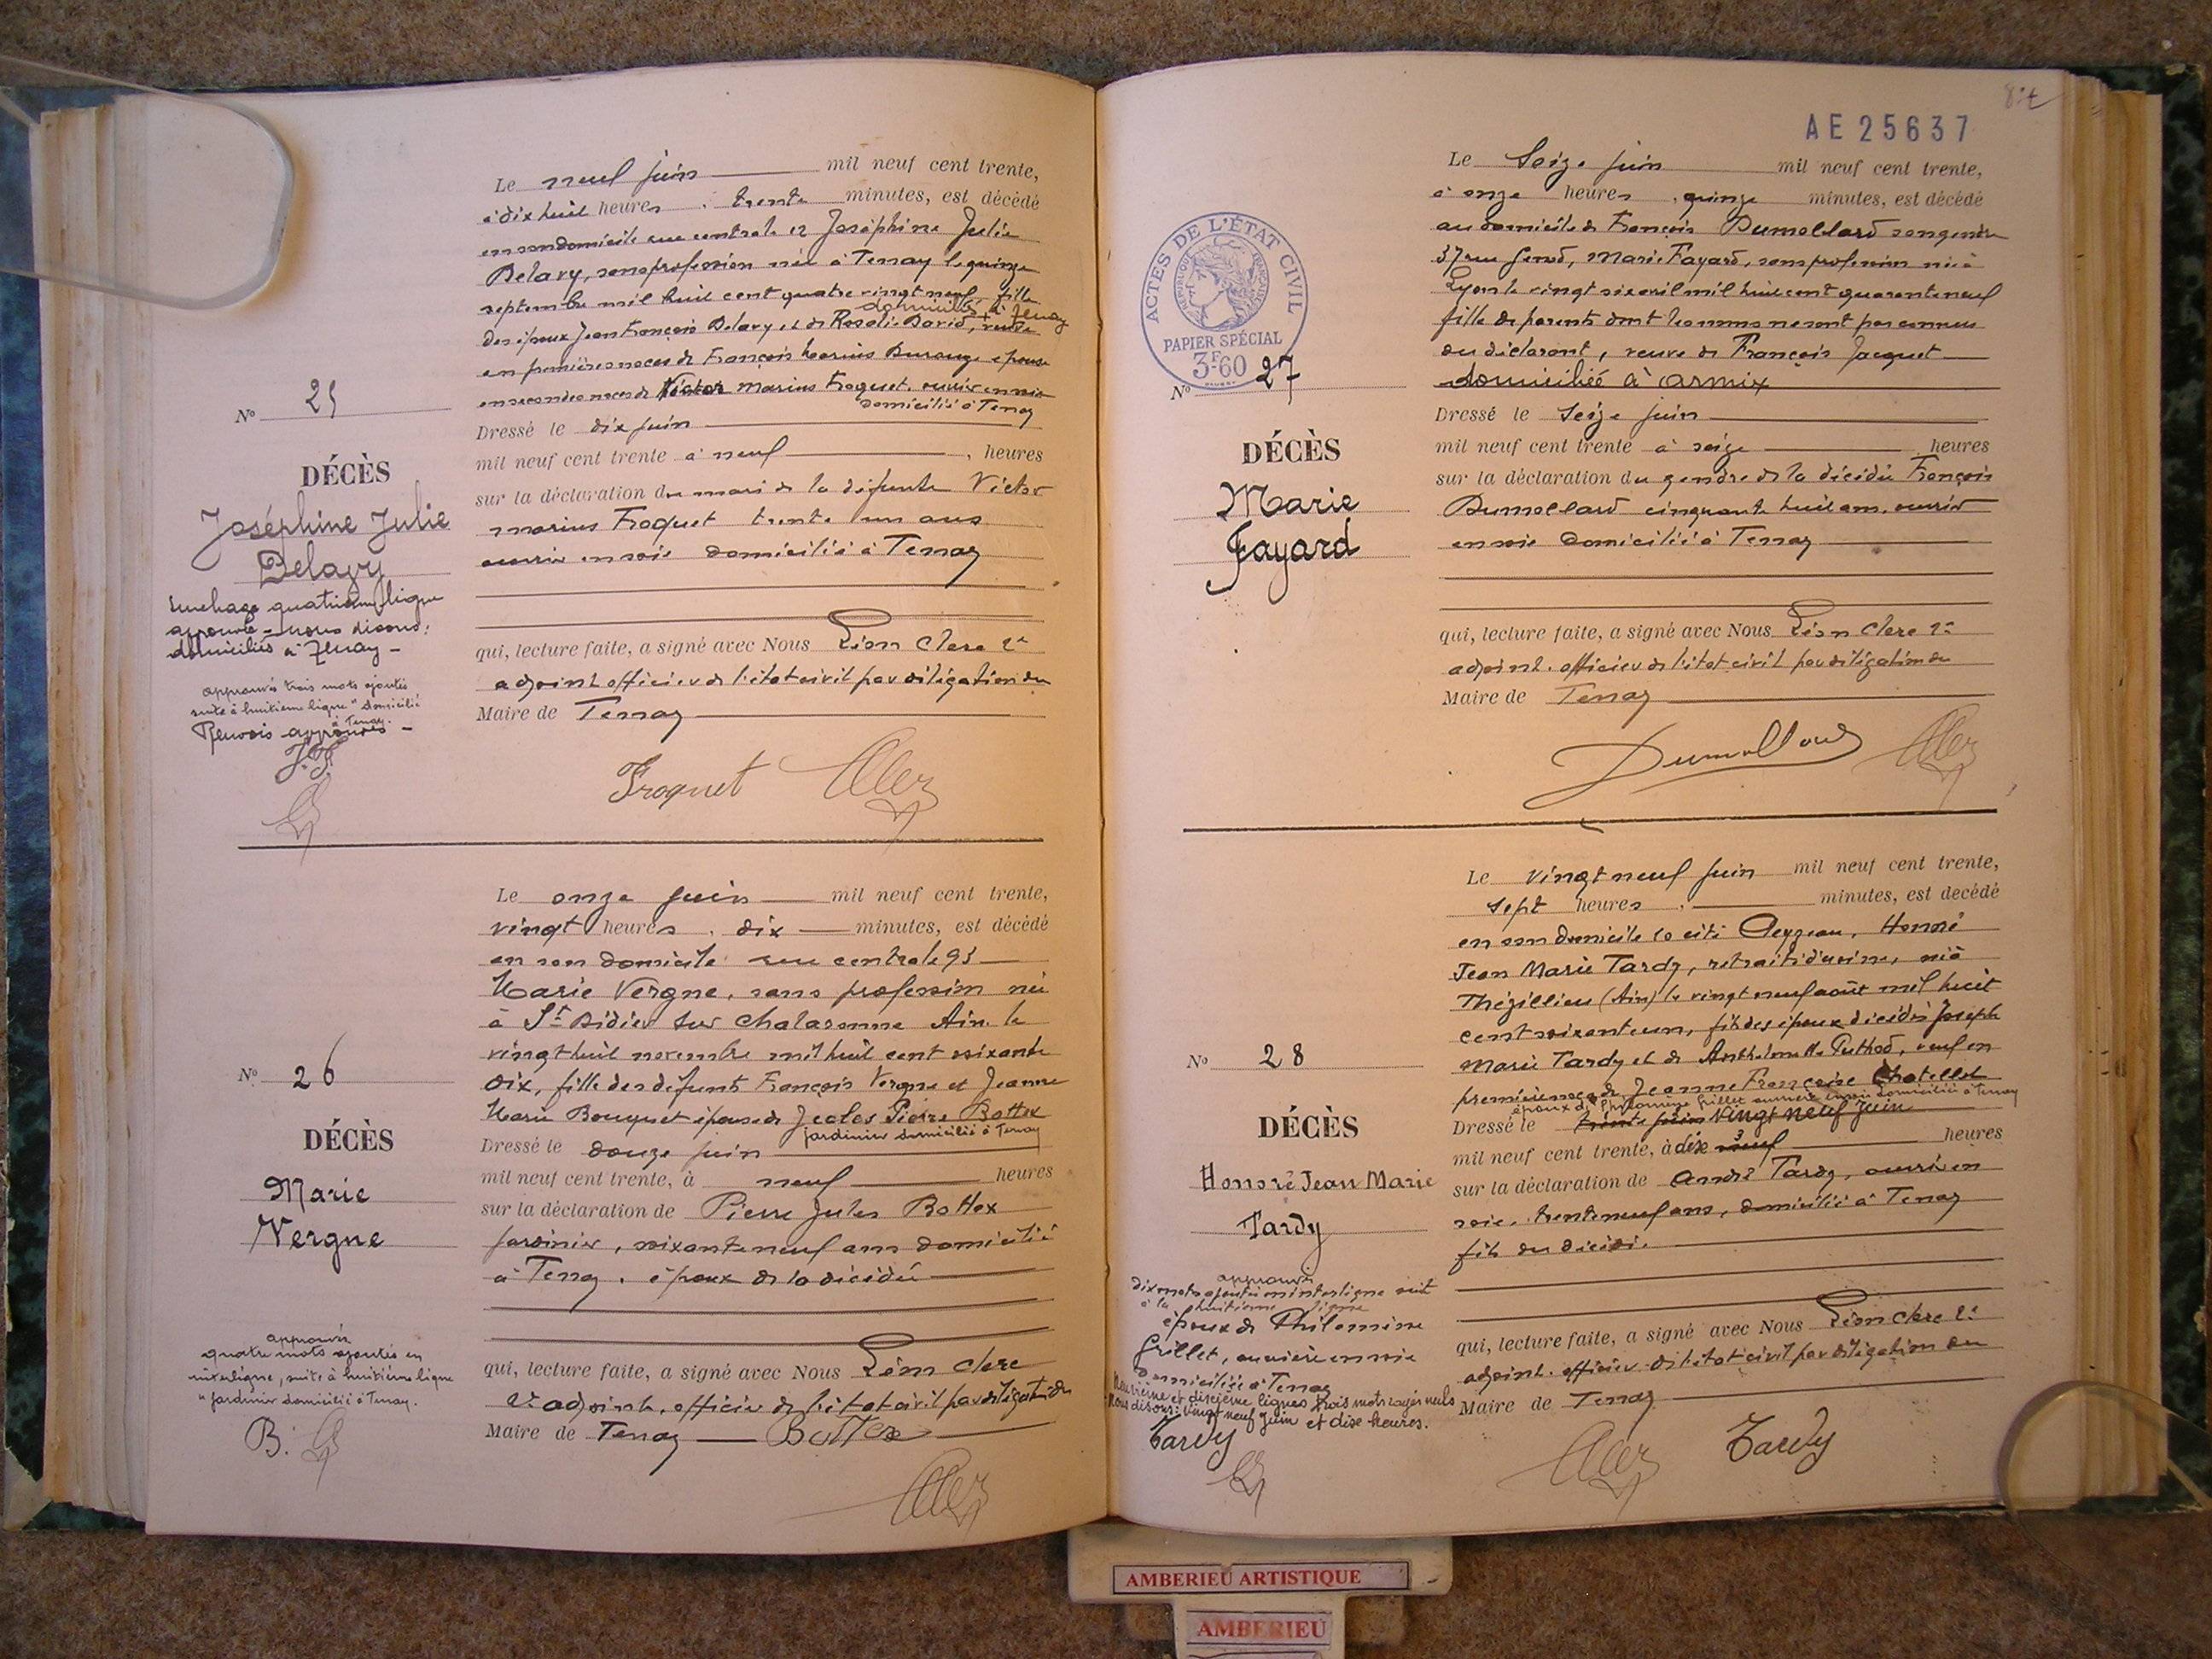 Le neuf juin mil neuf cent trente,
à dix huit heures, trente minutes, est décédé
en son domicile rue centrale 12 Joséphine Julie
Delavy, sans profession née à Tenay le quinze
septembre mil huit cent quatre vingt neuf, fille
domiciliés à Tenay
des époux Jean François Delavy et de Rosalie David, veuve
en premières noces de François Marius Durouge épouse
en secondes noces de Victor Marius Froquet, ouvrier en soie
domicilié à Tenay
No 25
Dressé le dix juin
mil neuf cent trente à neuf, heures
DÉCÈS
Joséphine Julie
Delavy
sur la déclaration du mari de la défunte Victor
marius Froquet trente un ans
ouvrier en soie domicilié à Tenay
Surchage quatrième ligne
approuvée - nous disons:
domiciliés à Tenay -
approuvés trois mots ajoutés
suite à huitième ligne "domicilié
à Tenay.
Renvois approuvés -
J.F.
qui, lecture faite, a signé avec Nous Léon Clerc 2e
adjoint officier de l'état civil par délégation du
Maire de Tenay
Froquet
Le onze juin mil neuf cent trente,
vingt heures, dix minutes, est décédé
en son domicile rue centrale 95
Marie Vergne, sans profession née
à St Didier sur Chalaronne Ain le
vingt huit novembre mil huit cent soixante
dix, fille des défunts François Vergne et Jeanne
Marie Bouquet épouse de Jules Pierre Bottex
jardinier domicilié à Tenay
No 26
DÉCÈS
Marie
Vergne
Dressé le douze juin
mil neuf cent trente, à neuf heures
sur la déclaration de Pierre Jules Bottex
jardinier, soixante neuf ans domicilié
à Tenay, époux de la décédée
approuvés
quatre mots ajoutés en
interligne, suite à huitième ligne
"jardinier domicilié à Tenay.
B.
qui, lecture faite, a signé avec Nous Léon Clerc
2e adjoint, officier de l'état civil par délégation du
Maire de Tenay
Bottex
AE 25637
Le Seize juin mil neuf cent trente,
à onze heures, quinze minutes, est décédé
au domicile de François Dumollard son gendre
37 rue Genod, Marie Fayard, sans profession née à
Lyon le vingt six avril mil huit cent quarante neuf
fille de parents dont les noms ne sont pas connus
du déclarant, veuve de François Jacquet
domiciliée à Armix
ACTES DE L'ÉTAT CIVIL
RÉPUBLIQUE FRANÇAISE
PAPIER SPÉCIAL
3F.60
No 27
DÉCÈS
Marie
Fayard
Dressé le Seize juin
mil neuf cent trente à seize heures
sur la déclaration du gendre de la décédée François
Dumollard cinquante huit ans, ouvrier
en soie domicilié à Tenay
qui, lecture faite, a signé avec Nous Léon Clerc 2e
adjoint, officier de l'état civil par délégation du
Maire de Tenay
Dumollard
Le vingt neuf juin mil neuf cent trente,
sept heures, minutes, est decédé
en son domicile 10 cité Honoré
Jean Marie Tardy, retraité d'usine, né à
Thézillieu (Ain) le vingt neuf août mil huit
cent soixante un, fils des époux décédés Joseph
Marie Tardy et de Anthelmette Puthod, veuf en
premières noces de Jeanne Françoise Chatellet
époux de Philomène Grillet ouvrière en soie domiciliée à Tenay
No 28
DÉCÈS
Honoré Jean Marie
Tardy
Dressé le trente juin vingt neuf juin
mil neuf cent trente, à dix neuf heures
sur la déclaration de André Tardy, ouvrier en
soie, trente neuf ans, domicilié à Tenay
fils du décédé.
approuvés
dix mots ajoutés en interligne suite
à la huitième ligne
époux de Philomène
Grillet, ouvrière en soie
domiciliée à Tenay
Neuvième et dixième lignes trois mots rayés nuls
Nous disons: vingt neuf juin et dix heures.
Tardy
qui, lecture faite, a signé avec Nous Léon Clerc 2e
adjoint, officier de l'état civil par délégation du
Maire de Tenay
Tardy
AMBERIEU ARTISTIQUE
AMBERIEU